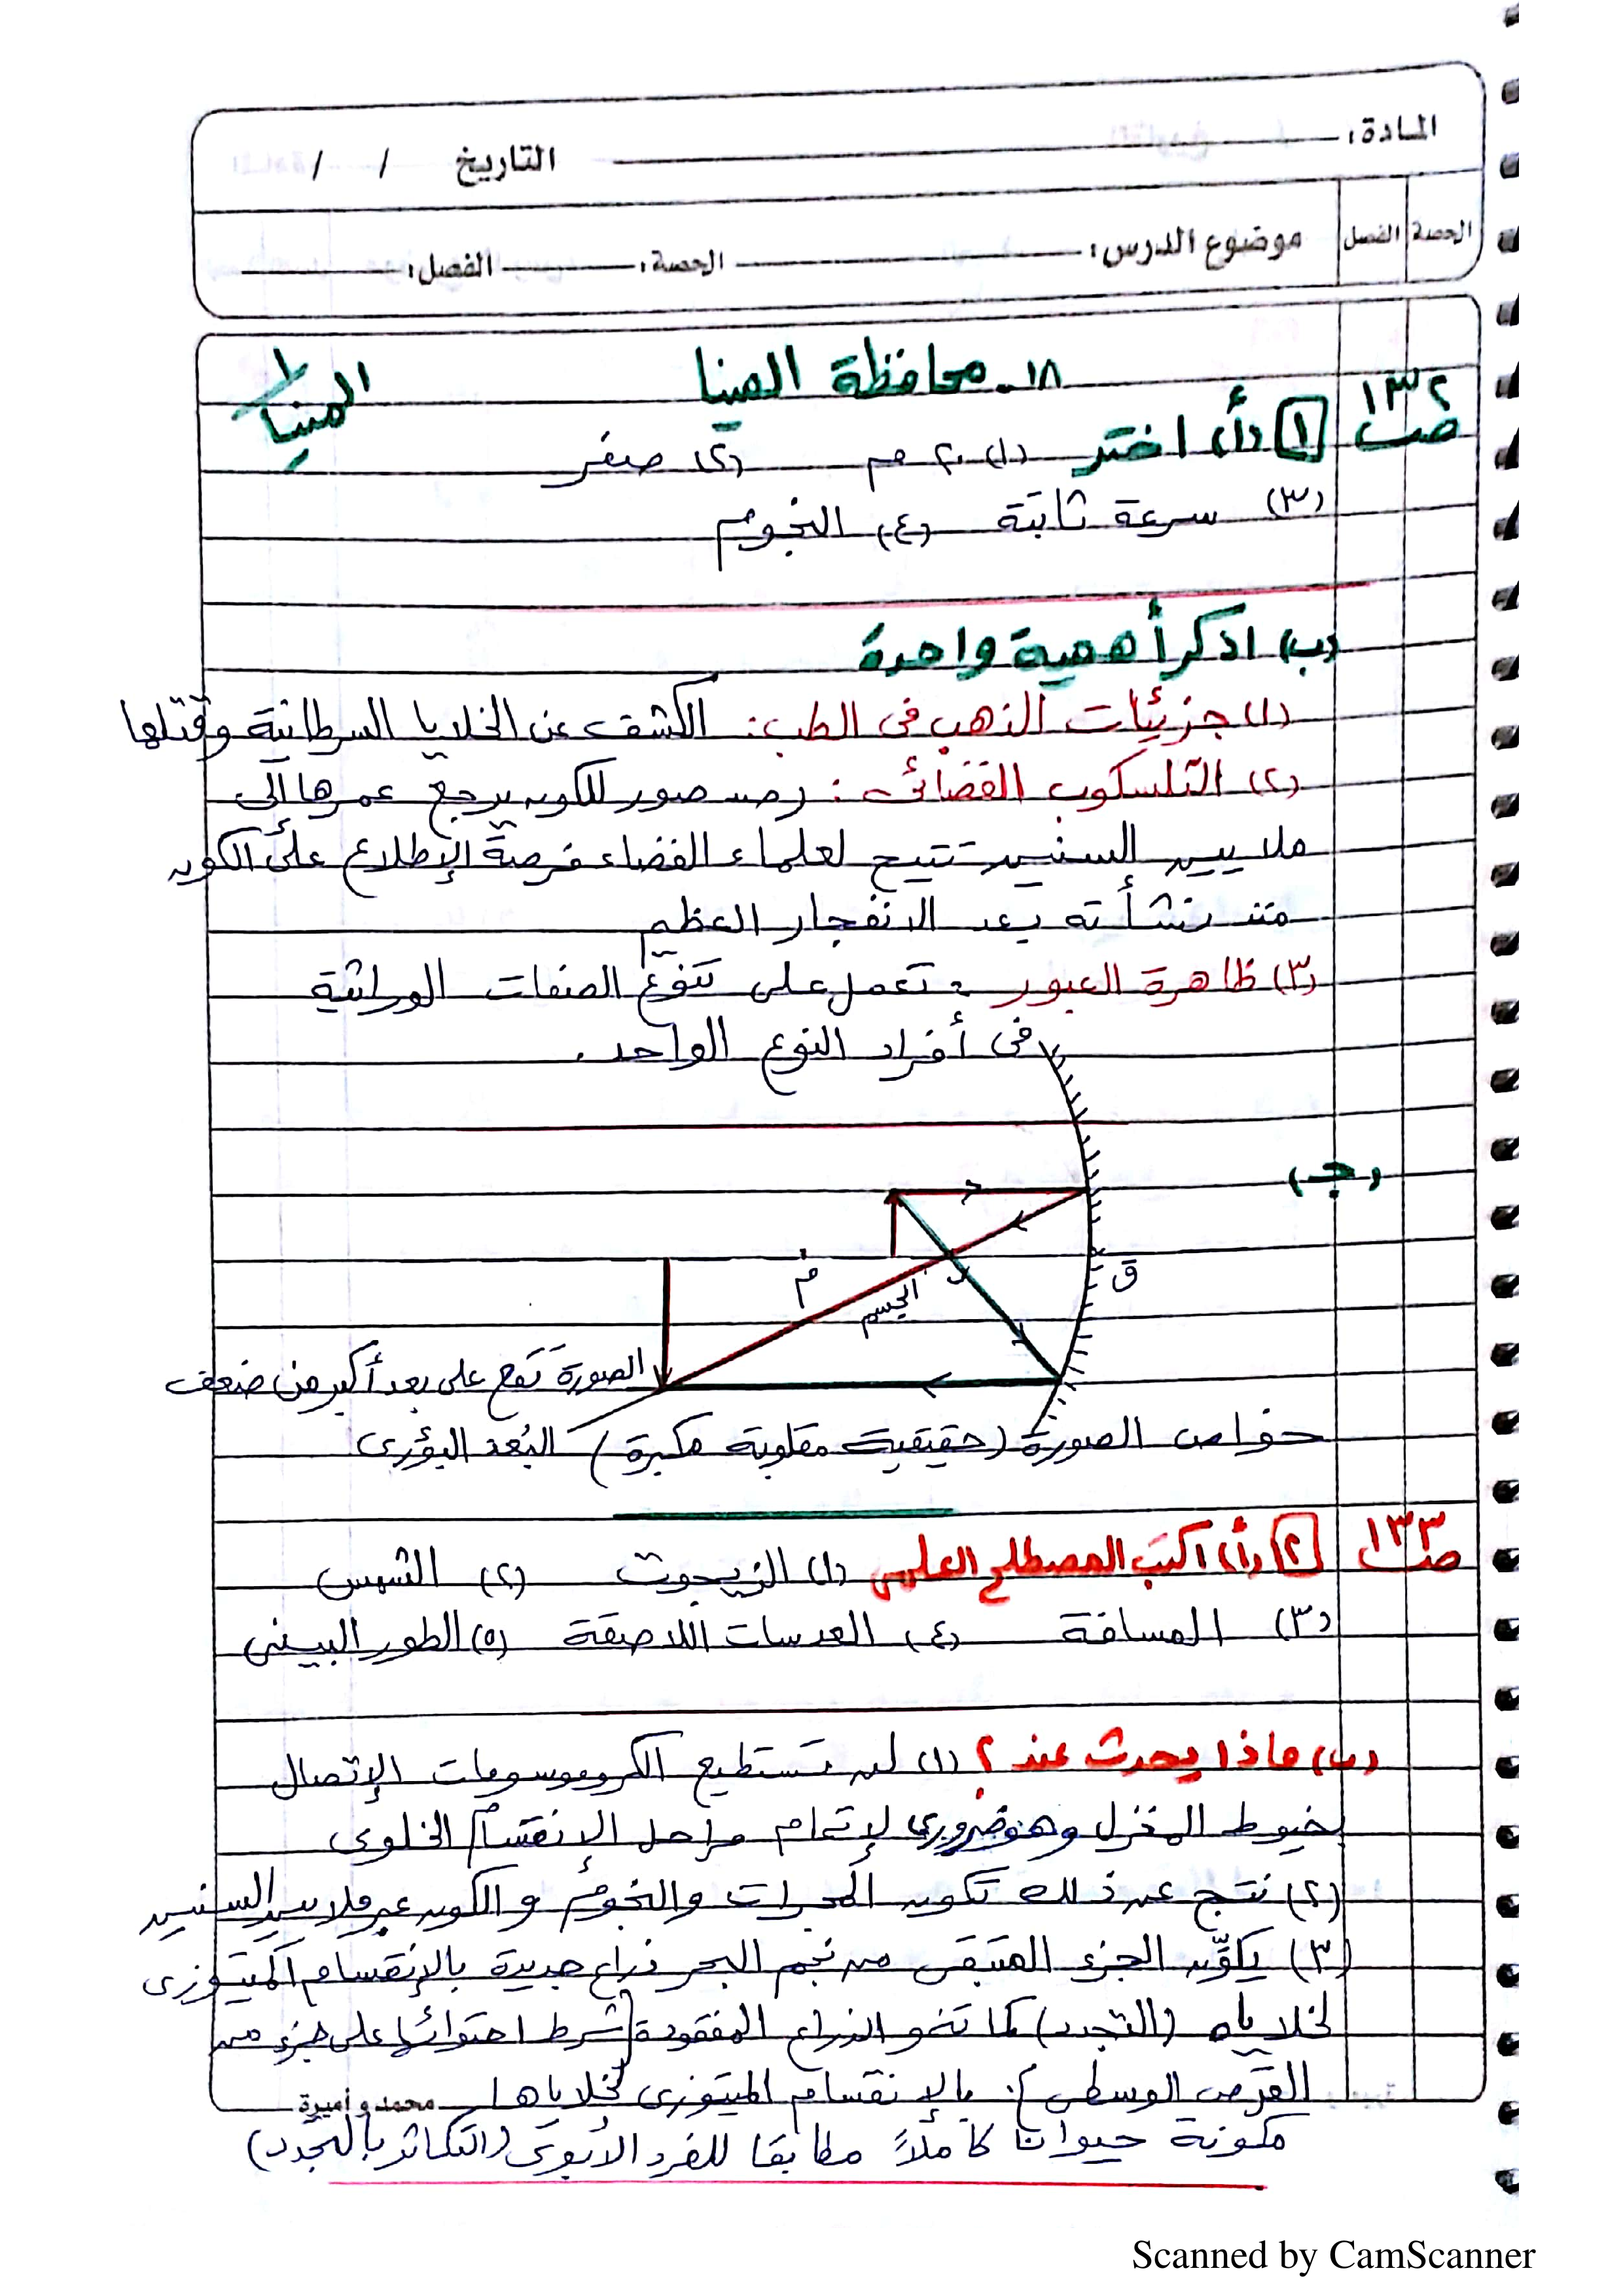 المادة: التاريخ / /
الحصة الفصل موضوع الدرس: الحصة: الفصل:
١٨- محافظة المنيا
المنيا ١
ص ١٣٢ ١ (أ) اختر (١) ٢٠ سم (٢) صفر
(٣) سرعة ثابتة (٤) النجوم
(ب) اذكر أهمية واحدة
(١) جزيئات الذهب فى الطب: الكشف عن الخلايا السرطانية وقتلها
(٢) التلسكوب الفضائى: رصد صور للكون يرجع عمرها الى
ملايين السنين تتيح لعلماء الفضاء فرصة الإطلاع على الكون
منذ نشأته بعد الانفجار العظيم
(٣) ظاهرة العبور: تعمل على تنوع الصفات الوراثية
فى أفراد النوع الواحد.
(جـ)
ق
م
الجسم
الصورة تقع على بعد أكبر من ضعف
خواص الصورة (حقيقية مقلوبة مكبرة) البُعد البؤرى
ص ١٣٣ ٢ (أ) اكتب المصطلح العلمى (١) الزيجوت (٢) الشمس
(٣) المسافة (٤) العدسات اللاصقة (٥) الطور البينى
(ب) ماذا يحدث عند؟ (١) لن تستطيع الكروموسومات الإتصال
بخيوط المغزل وهو ضرورى لإتمام مراحل الإنقسام الخلوى
(٢) نتج عن ذلك تكوين المجرات والنجوم والكون عبر ملايين السنين
(٣) يكوِّن الجزء المتبقى من نجم البحر ذراع جديدة بالإنقسام الميتوزى
لخلاياه (التجدد) كما تنمو الذراع المفقودة [شرط احتوائها على جزء من
القرص الوسطى]. بالإنقسام الميتوزى لخلاياها
محمد و أميرة
مكونة حيوانا كاملاً مطابقا للفرد الأبوى (التكاثر بالتجدد)
Scanned by CamScanner